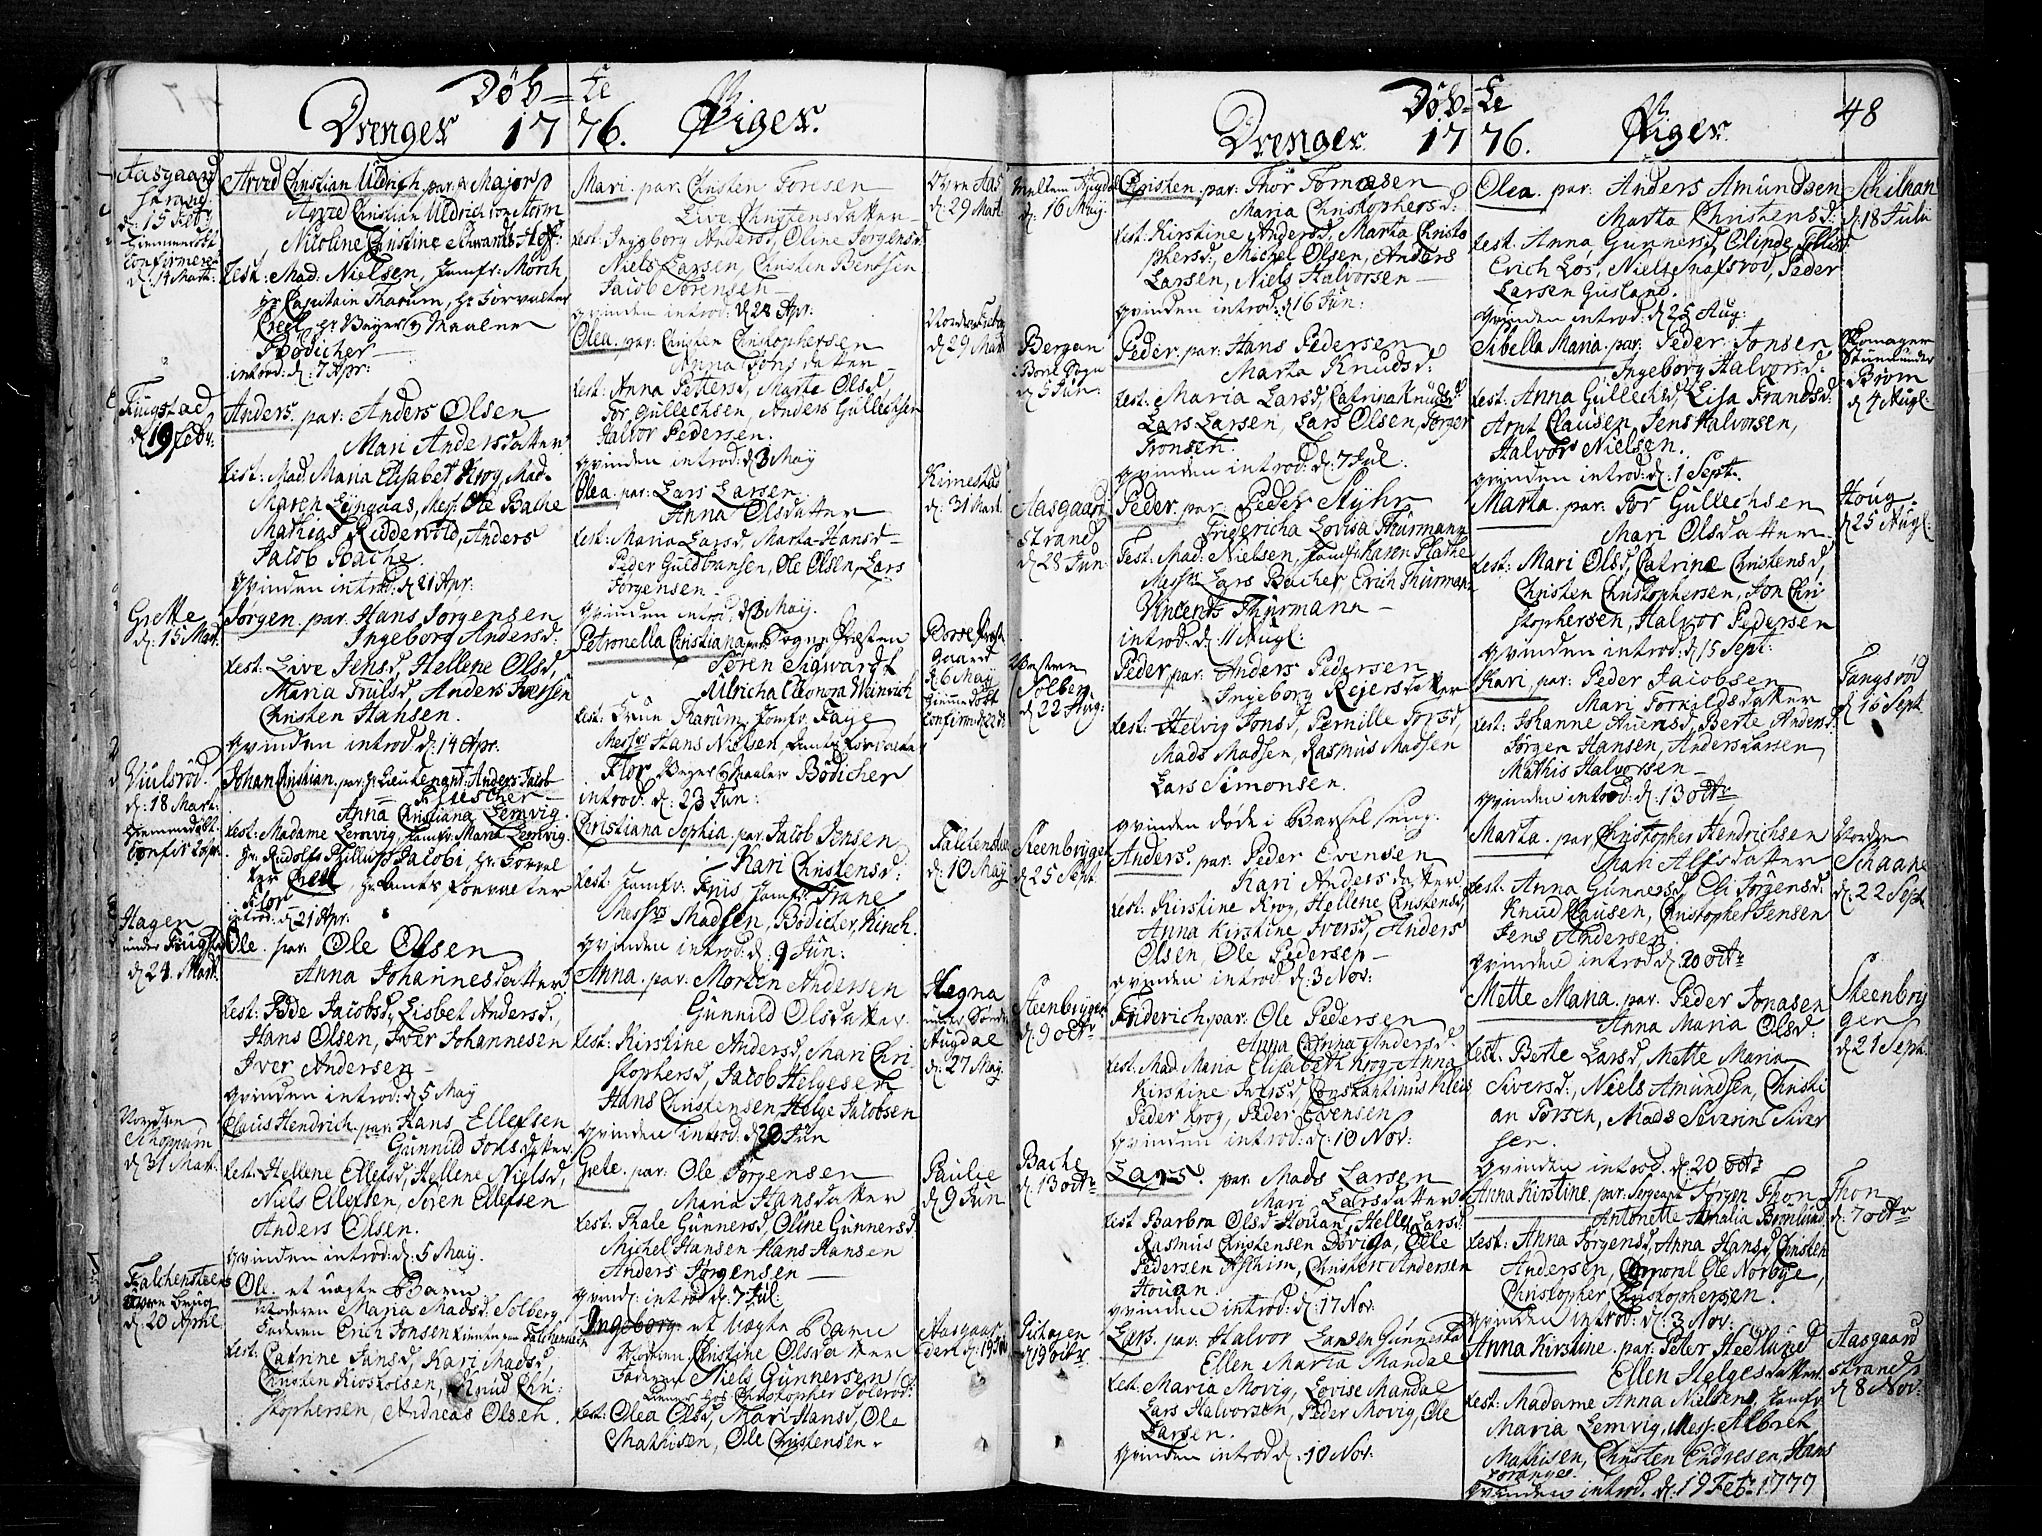 Døb=te
Drenger 1776. Piger.
Aasgaard
strand
d: 15 Feb:
hiemmedøbt
confirmeret
d: 14 Mart:
Arved Christian Uldrich, par: Hr Major
Arved Christian Uldrich von Storm
Nicoline Christine
Test: Mad: Nielsen, Jomfr: Morch,
Hr Capitain Tharum, Hr Forvalter
Creel, Hr Beyer &
Bødicher
introd: d: 7 Apr:
Fuugstad
d: 19 Febr.
Anders, par: Anders Olsen
Mari Andersdatter
test: Mad: Maria Elisabet Krog, Mad-
Maren, Mesr: Ole Bache
Mathias Riddervold, Anders
Jacob Bache
qvinden introd: d: 21 Apr:
Grette
d: 15 Mart.
Jørgen, par: Hans Jørgensen
Ingeborg Andersd:
test: Live Jensd, Hellene Olsd,
Maria Truilsd, Anders Iversen
Christen Hansen.
qvinden introd: d: 14 Apr:
d: 18 Mart.
hiemmedøbt
confir 2 apr:
Johan Christian, par: Hr Lieutenant Anders Jacob
Anna Christiana Lemvig.
test: Madame Lemvig, Jomfr: Maria Lemvig.
Hr. Rudolf Phillip Jacobi, Hr. Forval
ter Creel, Hr Amts forvalter
Flor
introd: d: 21 Apr:
Hagen
under
d: 24 Mart.
Ole, par: Ole Olsen
Anna Johannesdatter
test: Jacobsd, Lisbet Andersd:,
Hans Olsen, Iver Johannesen
Iver Andersen
qvinden introd: d: 5 May
Nordre
Schoppum
d: 31 Mart.
Claus Hendrich, par: Hans Ellefsen
Gunnild Jonsdatter
test: Hellene Ellefsd, Hellene Nielsd,
Niels Ellefsen, Søren Ellefsen
Anders Olsen.
qvinden introd: d: 5 May.
Falchensteens
d: 20 Aprile
Ole. et uægte Barn
Moderen Maria Madsd: Solberg
Faderen Erich Jonsen
test: Catrine Jansd, Kari Madsd,
Christen, Knud Chri-
stophersen, Andreas Olsen.
Mari. par: Christen Foresen
Live Christensdatter
test: Ingeborg Andersd, Oline Jørgensd.
Niels Larsen, Christen Bentsen
Jacob Sørensen
qvinden introd: d 28 Apr:
Øvre Aas
d: 29 Mart.
Olea. par: Christen Christophersen
Anna Johsdatter
test: Anna Pettersd, Marte Olsd,
Tor Gullechsen, Anders Gullechsen
Halvor Pedersen.
qvinden introd: d 3 May
d: 29 Mart
Olea. par: Lars Larsen
Anna Olsdatter
test: Maria Larsd, Marta Hansd
Peder Guldbransen, Ole Olsen, Lars
Jørgensen
qvinden introd: d 3 Maij.
Kirnestad
d: 31 Mart.
Petronella Christiana, par: Sogne Presten
Søren Sigwardt
Ulricha Eleonora Weinrich
test: Frue Tharum, Jomfr: Faye
Messrs Hans Nielsen,
Flor, Beyer & Bødicher
introd: d: 23 Jun:
Borre Præste
gaard
d: 6 May
hiemmedøbt
confirm: d 22
Christiana Sophia, par: Jacob Jensen
Kari Christensd:
test: Jomfr: Friis, Jomfr: Trane
Messrs Madsen, Bødicher, Hinch.
qvinden introd: d: 9 Jun:
Falchensteen
d: 10 May
Anna. par: Morten Andersen
Gunnild Olsdatter.
test: Kirstine Andersd, Mari Chri-
stophersd, Jacob Helgesen
Hans Christensen, Helge Jacobsen
qvinden introd: d 20 Jun
Hegna
under Søndre
Augdal
d: 27 May.
Grete. par: Ole Jørgensen
Maria Hansdatter
test: Thale Gunnersd, Oline Gunnersd
Michel Hansen Hans Hansen
Anders Jørgensen
qvind: introd d: 7 Jul
Paulie
d: 9 Jun
Ingeborg. et Uægte Barn
Moderen Christine Olsdatter
Faderen Niels Gunnersen
test: Olea Olsd, Mari Hansd, Ole
Mathisen, Ole Christensen.
Døb=te 48
Drenger 1776. Piger.
d: 16 Maij.
Christen, par: Thor Tomæsen
Maria Christophersd:
test: Kirstine Andersd, Marta Christo
phersd, Michel Olsen, Anders
Larsen, Niels Halvorsen
qvinden introd: d 16 Jun:
Bergan
i Borre Sogn
d: 5 Jun:
Peder. par: Hans Pedersen
Marta Knudsd:
test: Maria Larsd, Catrina Knudsd
Lars Larsen, Lars Olsen, Jørger
Tronsen.
qvinden introd: d: 7 Jul.
Aasgaard
strand
d: 28 Jun
Peder, par: Peder Styhr
Friderich Lovisa Thurmann
Test: Mad: Nielsen, Jomfr Karen Plathe
Messrs Lars Bacher, Erich Thurmann
Vincents Thurmann
introd: d: 11 Augl:
Solberg
d: 22 Aug:
Peder, par: Anders Pedersen
Ingeborg Rejersdatter
test: Helvig Jonsd, Pernille Torsd,
Mads Madsen, Rasmus Madsen
Lars Simonsen.
qvinden døde i Barsel seng.
Steenbrygen
d: 25 Sept.
Anders. par: Peder Evensen
Kari Andersdatter
test: Kirstine Krog, Hellene Christensd,
Anna Kirstine Iversd, Anders
Olsen, Ole Pedersen
qvinden introd d: 3 Nov:
Steenbrygen
d: 9 octr
Friderich, par: Ole Pedersen
Anna Andersd:
test: Mad Maria Elisabeth Krog, Anna
Kirstine, Constantinus Kleis
Peder Krog, Peder Evensen
qvinden introd: d: 10 Nov:
Bache
d: 13 octr
Lars. par: Mads Larsen
Mari Larsdatter
test Barbra Olsd Houan, Helle Larsd:
Rasmus Christensen, Olle
Pedersen, Christen Andersen
Houan.
qvinden introd: d: 17 Nov:
d: 19 octr
Lars. par: Halvor Larsen Gunnestad
Ellen Maria Mandal
test: Maria Movig, Lovise Mandal
Lars Halvorsen, Peder Movig, Ole
Larsen.
qvinden introd d: 10 Nov:
Olea. par: Anders Amundsen
Marta Christensd:
test: Anna Gunnersd, Olinde
Erich Løs, Niels, Peder
Larsen Gusland.
qvinden introd: d 25 Aug:
d: 18 Julii
Sibella Maria. par: Peder Jonsen
Ingeborg Halvorsd:
test: Anna Gullechsd, Lisa Frandsd.
Arnt Clausen, Jens Halvorsen,
Halvor Nielsen.
qvinden introd: d: 1 Sept.
d 4 Augl
Marta. par: Tor Gullechsen
Mari Olsdatter
test: Mari Olsd, Catrine Christensd,
Christen Christophersen, Jon Chri
stophersen, Halvor Pedersen
qvinden introd: d 15 Sept:
Houg
d 25 Augl:
Kari, par: Peder Jacobsen
Mari Torkildsdatter
test: Johanne, Berte Andersd.
Jørgen Hansen, Anders Larsen
Mathis Halvorsen
qvinden introd: d: 13 octr
Fangsrød
d 15 Sept
Marta. par, Christopher Hendrichsen
Mari Alfsdatter
test: Anna Gunnersd, Eli Jørgensd:
Knud Clausen, Christopher Jensen
Jens Andersen
qvinden introd d: 20 octr
Nordre
Schaane
d: 22 Sept
Mette Maria. par: Peder Jonasen
Anna Maria Olsd:
test: Berte Larsd, Mette Maria
Siversd:, Niels Amundsen, Christi
an Torsen, Mads Severin Siver
sen.
qvinden introd d: 20 octr
Steenbry
gen
d 21 Sept.
Anna Kirstine, par: Sergeant Jørgen Thon
Antonette Amalia
test: Anna Jørgensd, Anna Hansd, Christen
Andersen, Ole Norbye,
Christopher Christophersen.
qvinden introd: d: 3 Nov:
Thon
d: 7 octr
Anna Kirstine. par: Peter Hedlund
Ellen Helgesdatter
test: Madame Anna Nielsen, Jomfr
Maria Lemvig, Mesr: Albret
Mathisen, Christen Endresen, Hans
qvinden introd. d: 19 Feb: 1777
Aasgaard
strand
d 8 Nov: